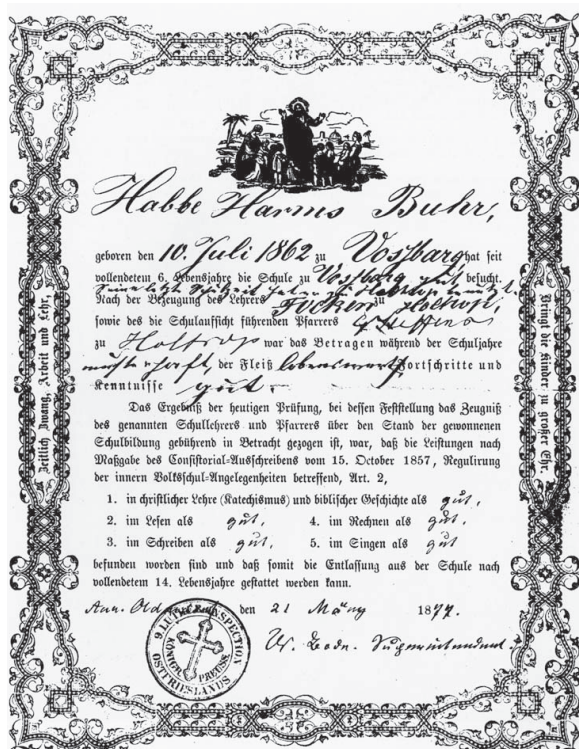 Habbe Harms Buhr,
geboren den 10. Juli 1862 zu Vossbarg hat seit
vollendetem 6. Lebensjahre die Schule zu Vossbarg gut besucht.
Nach der Bezeugung des Lehrers Focken zu Holtrop,
sowie des die Schulaufsicht führenden Pfarrers
zu Holtrop war das Betragen während der Schuljahre
musterhaft, der Fleiß lobenswert, Fortschritte und
Kenntnisse gut.
Das Ergebniß der heutigen Prüfung, bei dessen Feststellung das Zeugniß
des genannten Schullehrers und Pfarrers über den Stand der gewonnenen
Schulbildung gebührend in Betracht gezogen ist, war, daß die Leistungen nach
Maßgabe des Consistorial-Ausschreibens vom 15. October 1857, Regulirung
der innern Volksschul-Angelegenheiten betreffend, Art. 2,
1. in christlicher Lehre (Katechismus) und biblischer Geschichte als gut,
2. im Lesen als gut, 4. im Rechnen als gut,
3. im Schreiben als gut, 5. im Singen als gut
befunden worden sind und daß somit die Entlassung aus der Schule nach
vollendetem 14. Lebensjahre gestattet werden kann.
den 21 März 1877.
W. Bode. Superintendent.
9. LUTHER. INSPECTION
OSTFRIESLANDS
KÖNIGL. PREUSS.
Zeitlich Zwang, Arbeit und Lehr,
Bringt die Kinder zu großer Ehr.